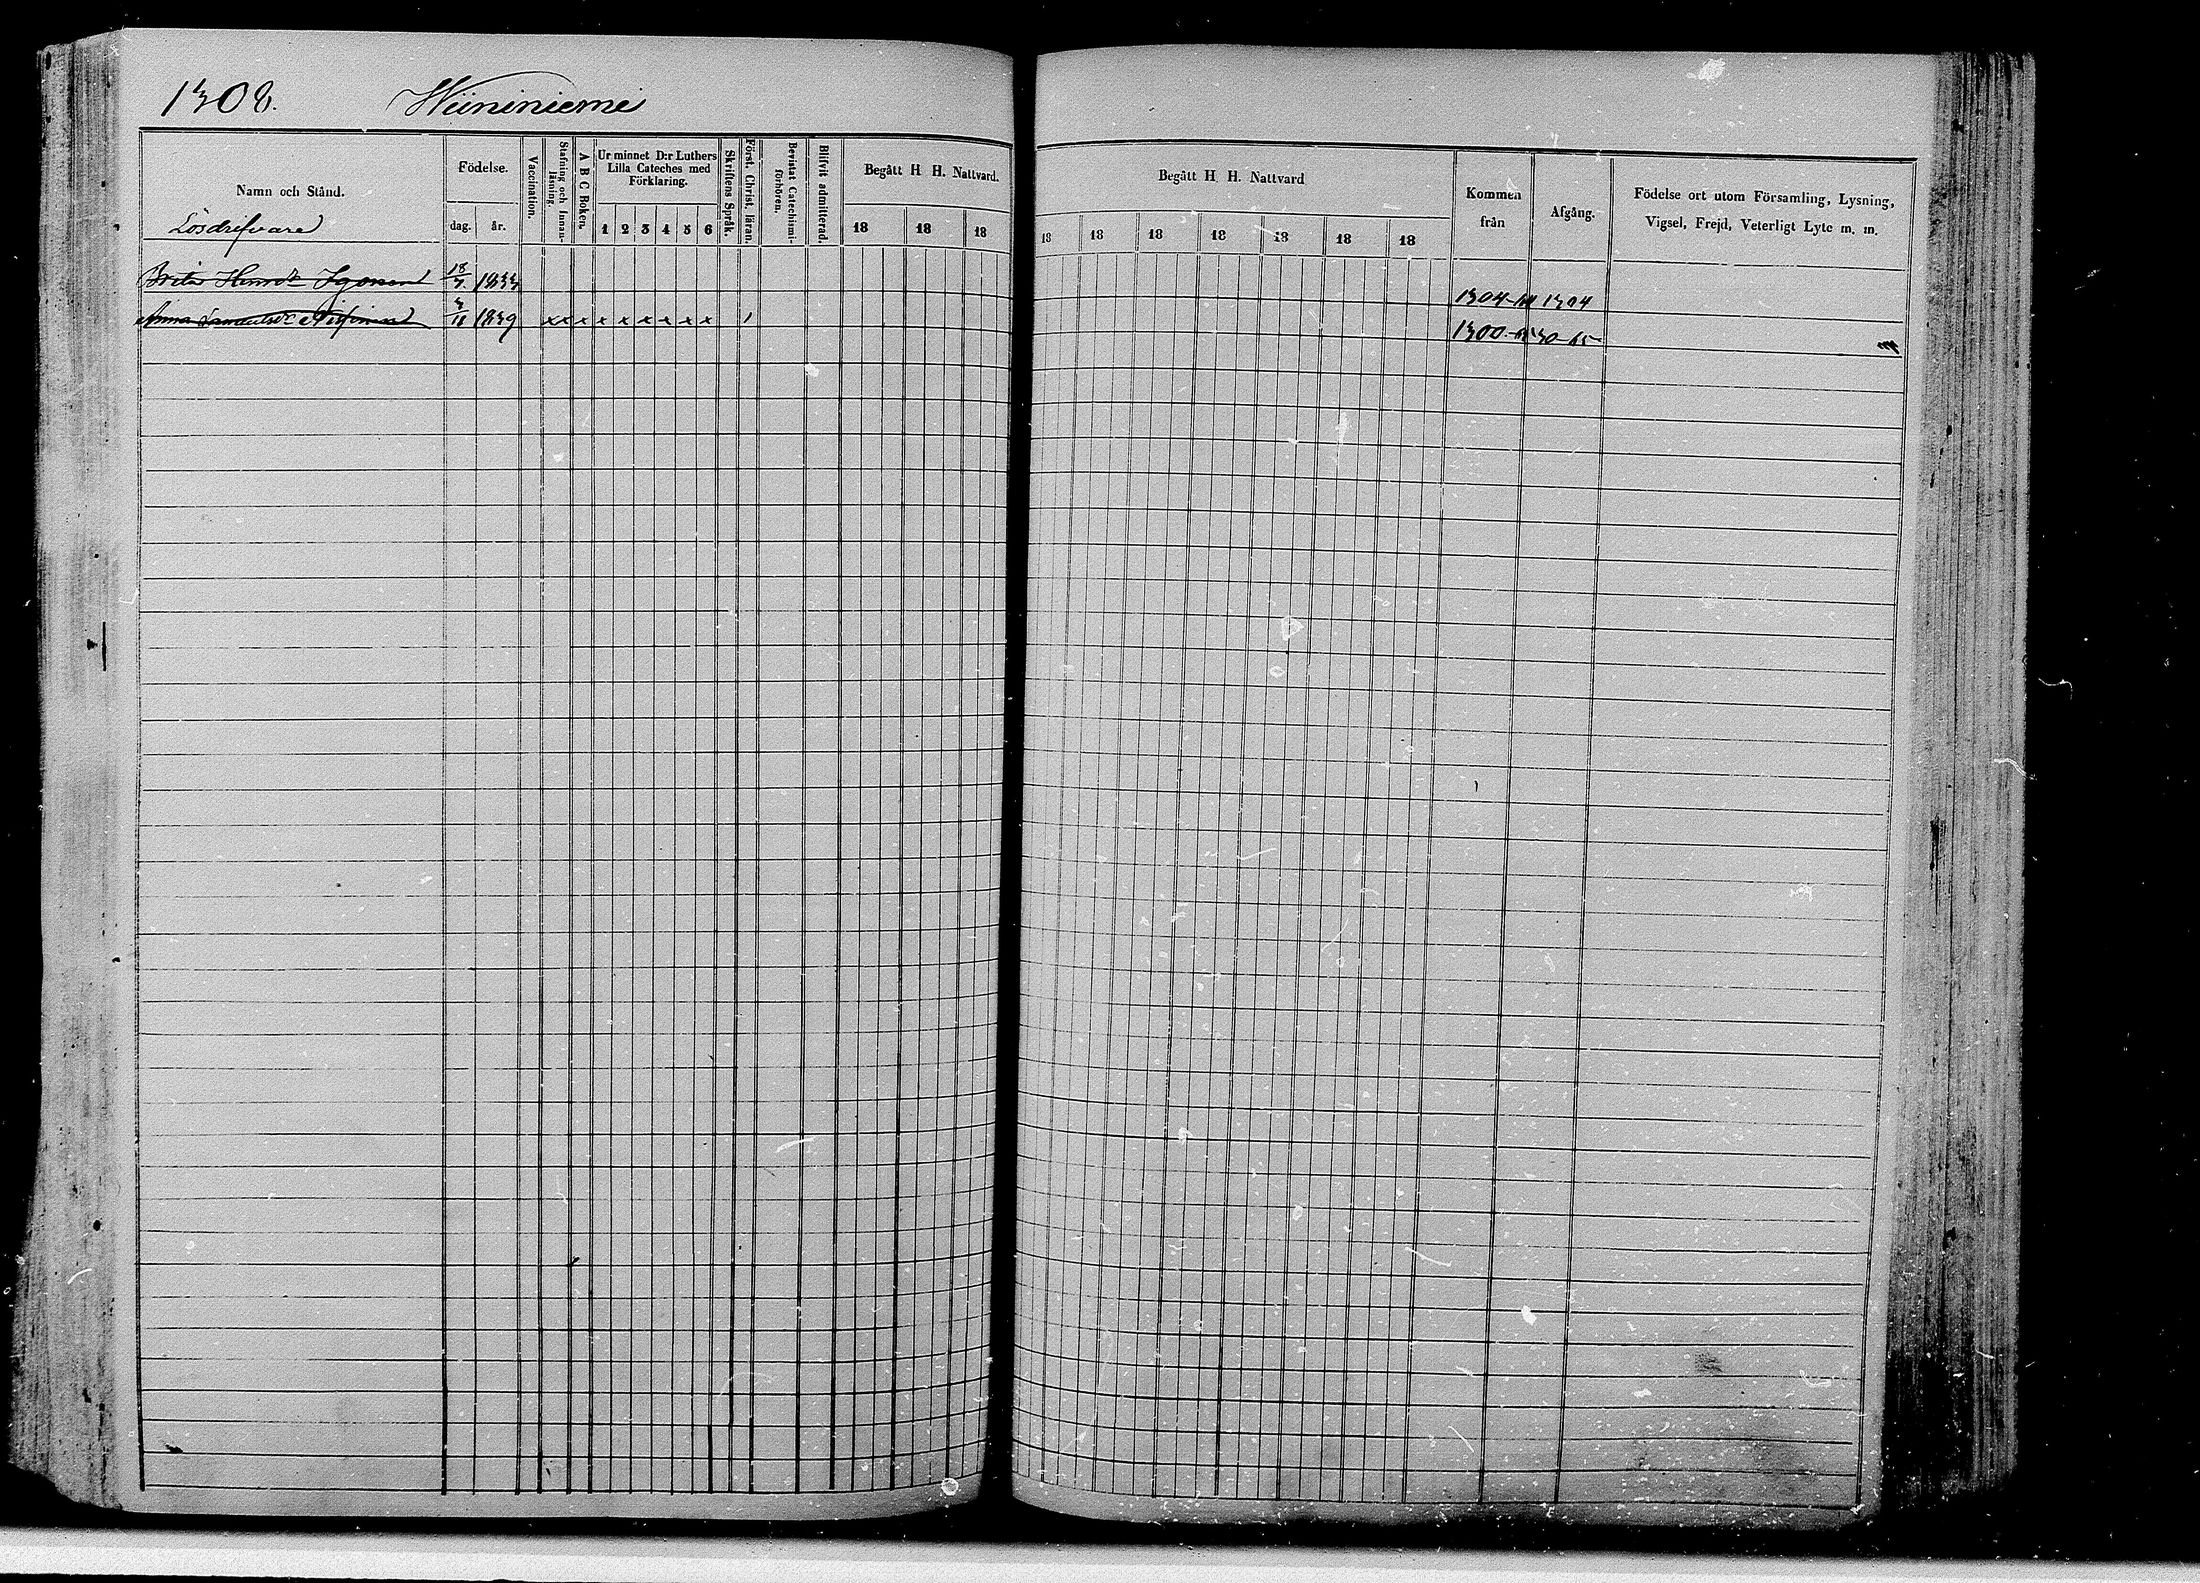 1308. Wiininiemi
Namn och Stånd.
Lösdrifvare
Födelse.
dag. år.
Vaccination.
Stafning och Innanläsning.
A B C Boken.
Ur minnet D:r Luthers
Lilla Cateches med
Förklaring.
1 2 3 4 5 6
Skriftens Språk.
Först. Christ. läran.
Bevistat Catechismiförhören.
Blifvit admitterad.
Begått H H. Nattvard.
18 18 18
Begått H H. Nattvard
18 18 18 18 18 18 18
Kommen
från
Afgång.
Födelse ort utom Församling, Lysning,
Vigsel, Frejd, Veterligt Lyte m. m.
Brita Henrdr 18/7 1833 1304 1304
Anna Samuelsdr 3/11 1839 x x x x x x x x x 1300 30-65